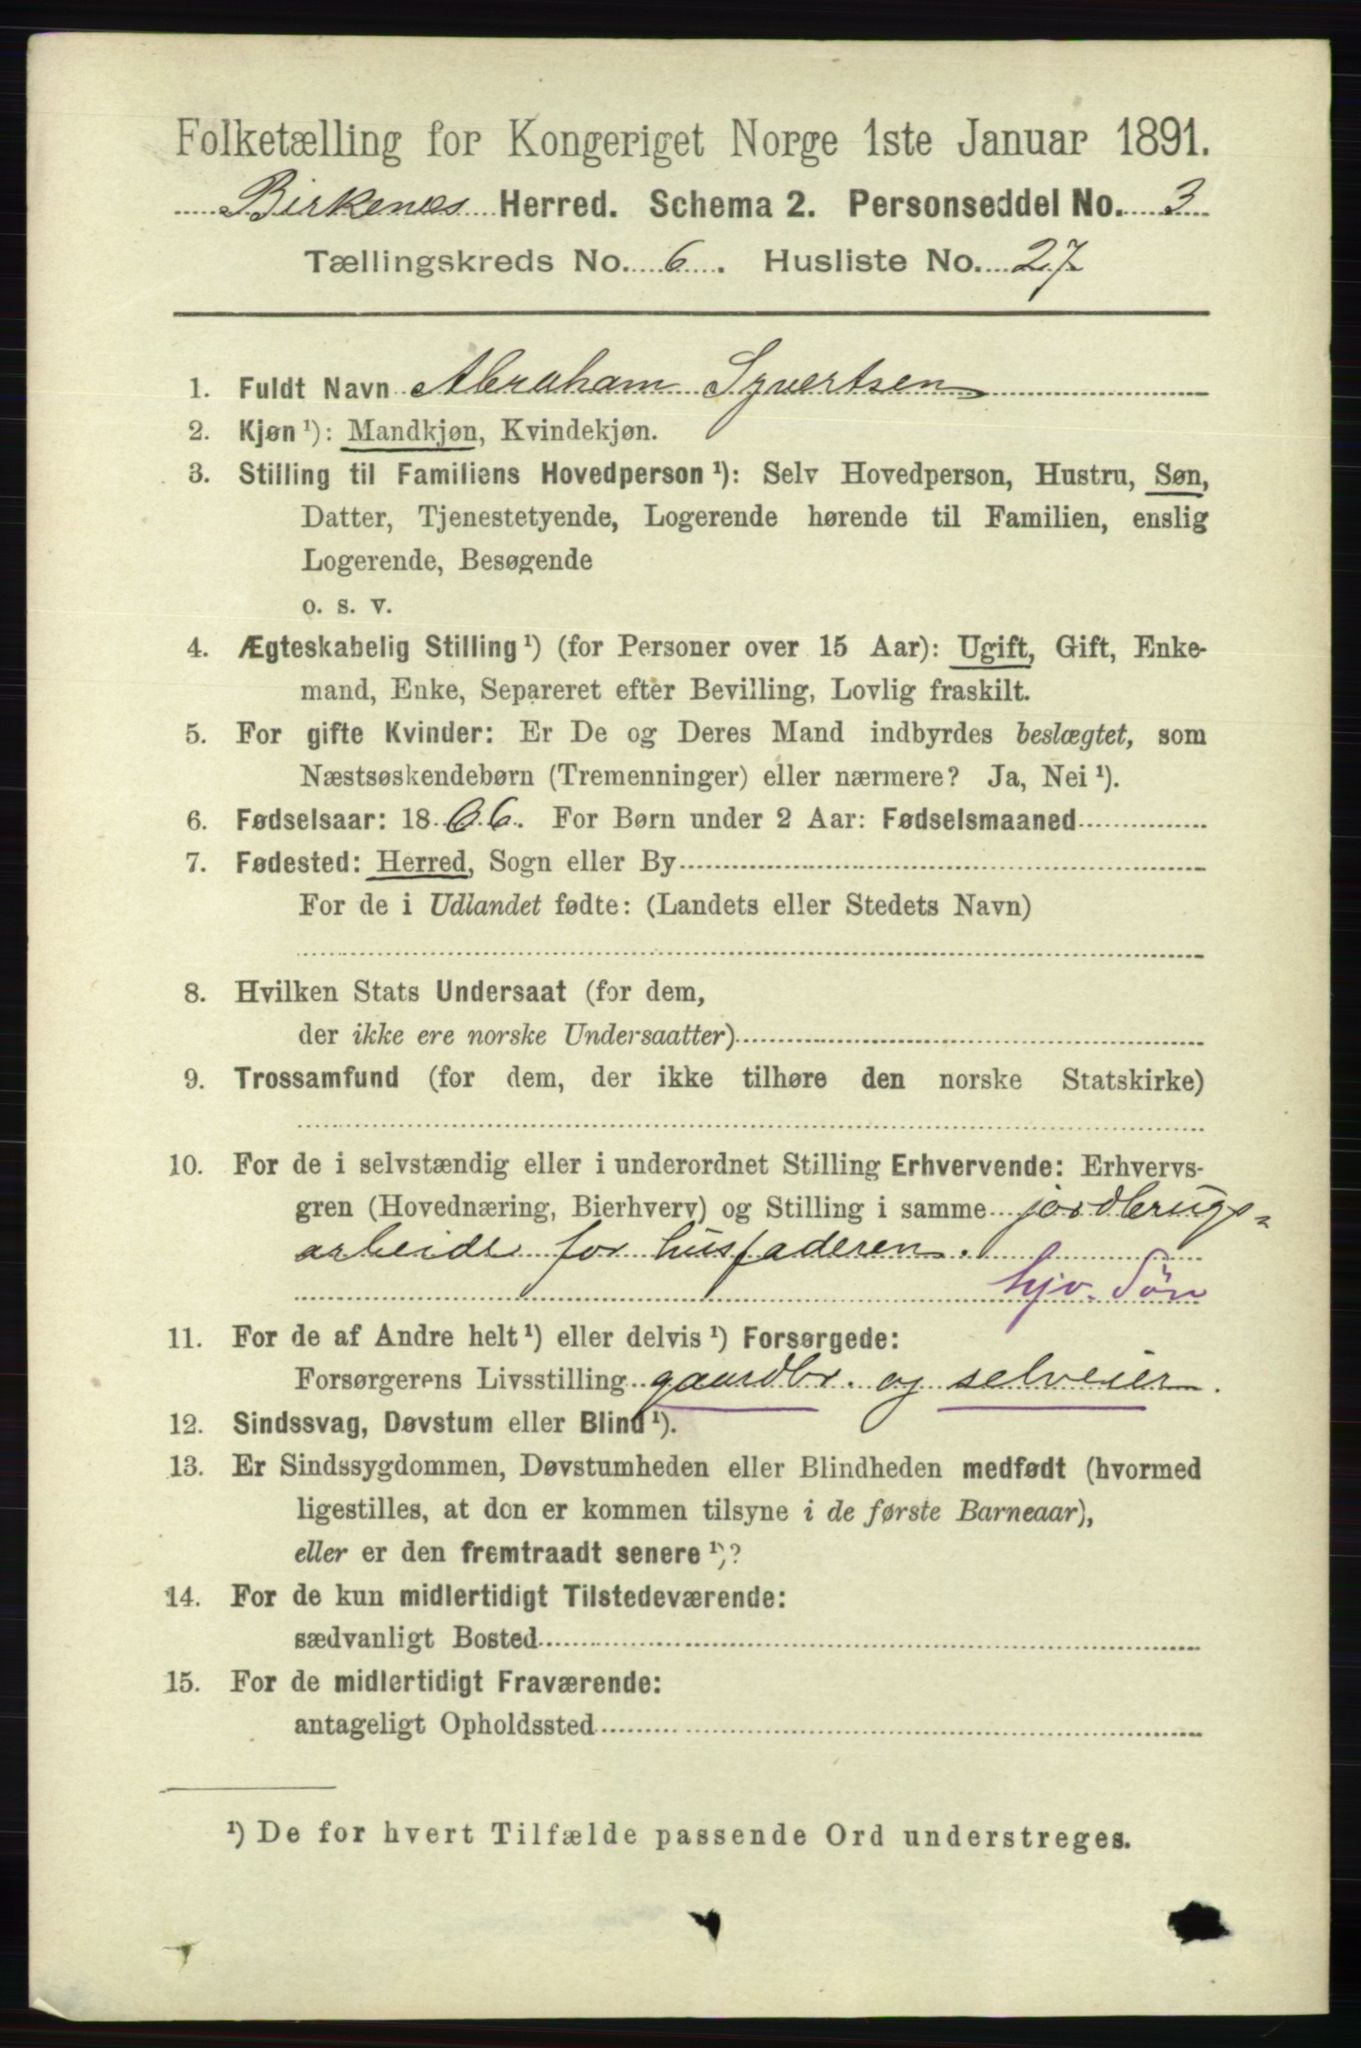 Folketælling for Kongeriget Norge 1ste Januar 1891.
Birkenæs Herred. Schema 2. Personseddel No. 3
Tællingskreds No. 6. Husliste No. 27
1. Fuldt Navn Abraham Syvertsen
2. Kjøn ¹): Mandkjøn, Kvindekjøn.
3. Stilling til Familiens Hovedperson ¹): Selv Hovedperson, Hustru, Søn,
Datter, Tjenestetyende, Logerende hørende til Familien, enslig
Logerende, Besøgende
o. s. v.
4. Ægteskabelig Stilling ¹) (for Personer over 15 Aar): Ugift, Gift, Enke-
mand, Enke, Separeret efter Bevilling, Lovlig fraskilt.
5. For gifte Kvinder: Er De og Deres Mand indbyrdes beslægtet, som
Næstsøskendebørn (Tremenninger) eller nærmere? Ja, Nei ¹).
6. Fødselsaar: 1866. For Børn under 2 Aar: Fødselsmaaned
7. Fødested: Herred, Sogn eller By
For de i Udlandet fødte: (Landets eller Stedets Navn)
8. Hvilken Stats Undersaat (for dem,
der ikke ere norske Undersaatter)
9. Trossamfund (for dem, der ikke tilhøre den norske Statskirke)
10. For de i selvstændig eller i underordnet Stilling Erhvervende: Erhvervs-
gren (Hovednæring, Bierhverv) og Stilling i samme jordbrugs-
arbeide for husfaderen.
hjv. Søn
11. For de af Andre helt ¹) eller delvis ¹) Forsørgede:
Forsørgerens Livsstilling gaardbr. og selveier.
12. Sindssvag, Døvstum eller Blind ¹).
13. Er Sindssygdommen, Døvstumheden eller Blindheden medfødt (hvormed
ligestilles, at den er kommen tilsyne i de første Barneaar),
eller er den fremtraadt senere ¹)?
14. For de kun midlertidigt Tilstedeværende:
sædvanligt Bosted
15. For de midlertidigt Fraværende:
antageligt Opholdssted
¹) De for hvert Tilfælde passende Ord understreges.